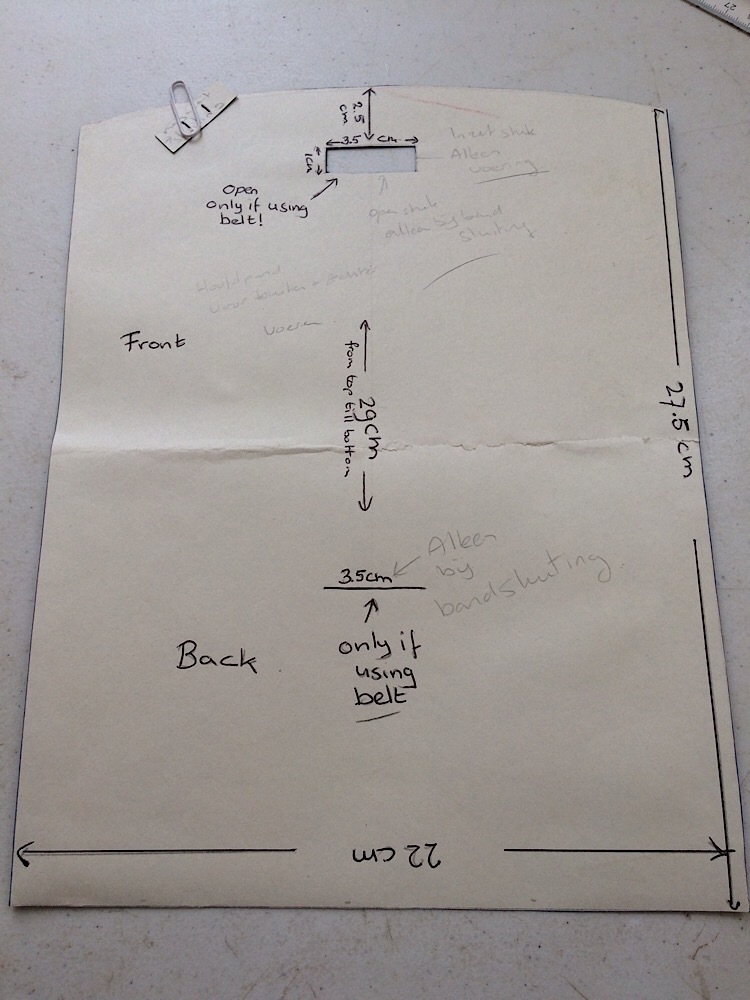 27
2.5
cm
3.5 cm
1cm
Open
only if using
belt!
Alleen
voering
open stuk
alleen bij band
sluiting
voeren
Front
from top till bottom
29cm
27.5 cm
3.5cm
Alleen
bij
bandsluiting
Back
only if
using
belt
22 cm